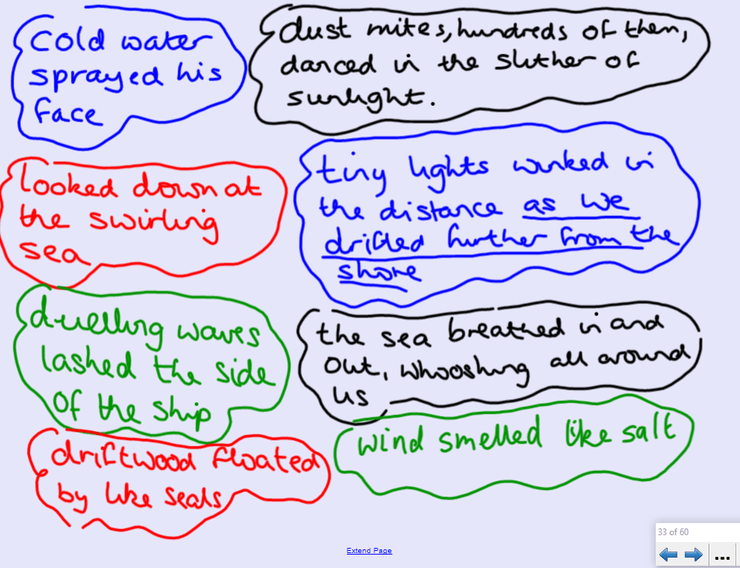 cold water
sprayed his
face
dust mites, hundreds of them,
danced in the slither of
sunlight.
looked down at
the swirling
sea
tiny lights winked in
the distance as we
drifted further from the
shore
duelling waves
lashed the side
of the ship
the sea breathed in and
out, whooshing all around
us
driftwood floated
by like seals
wind smelled like salt
Extend Page
33 of 60
...